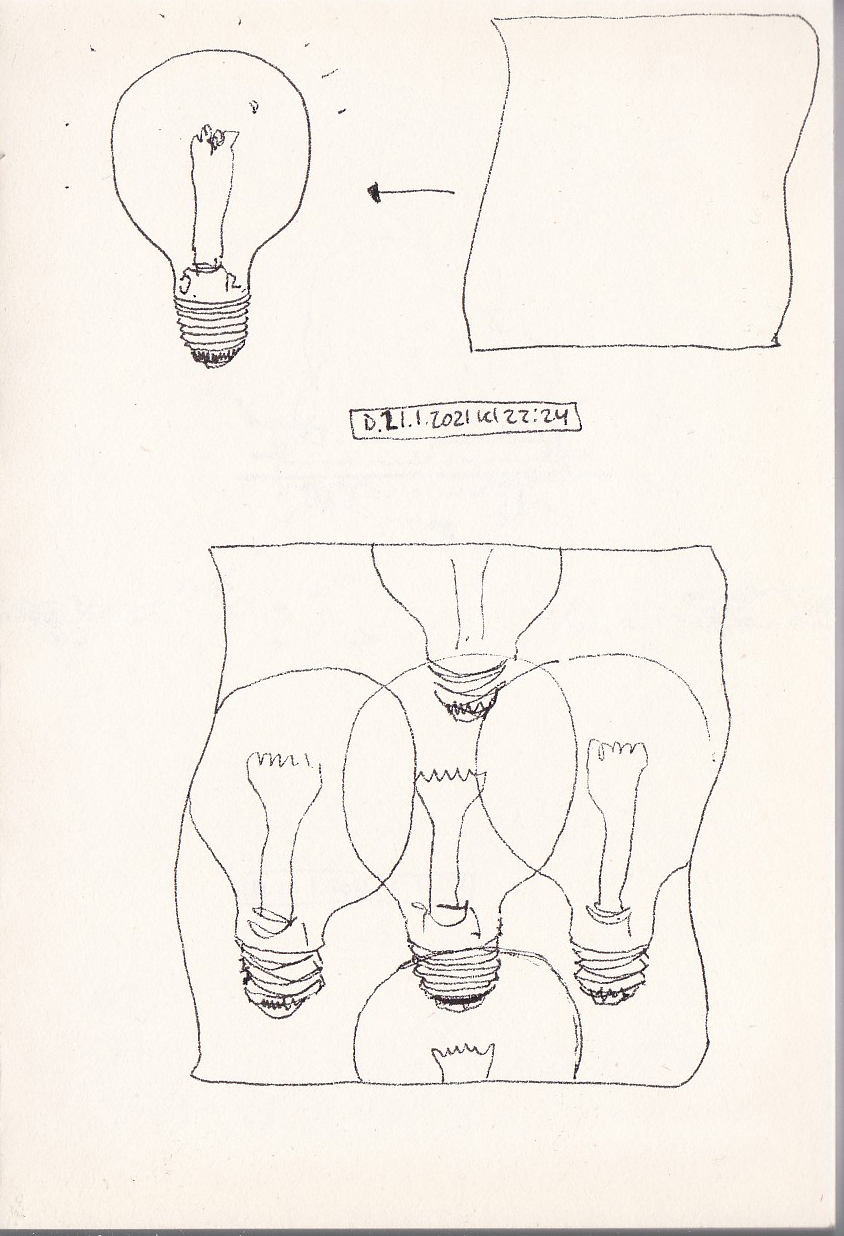 D.21.1.2021 kl 22:24